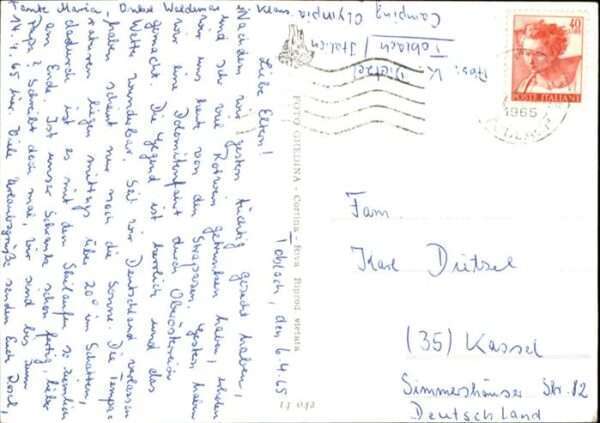 Toblach, den 6.4.65
Liebe Eltern!
Nachdem wir gestern tüchtig gezecht haben,
und sehr viel Rotwein getrunken haben, erholen
wir uns heute von den Strapazen. Gestern haben
wir eine Dolomitenfahrt durch Oberösterreich
gemacht. Die Gegend ist herrlich und das
Wetter wunderbar. Seit wir Deutschland verlassen
haben scheint nur noch die Sonne. Die Tempe-
raturen liegen mittags über 20° im Schatten,
dadurch ist es mit dem Skilaufen so ziemlich
am Ende. Ist unser Schrank schon fertig, lieber
Papa? Schreibt doch mal, wir sind bis zum
14.4.65 hier. Viele Urlaubsgrüße senden Euch
Tante Maria, Onkel Waldemar u. Klaus
Abs: K. Dietzel
Toblach / Italien
Camping Olympia
FOTO GHEDINA - Cortina - Riva Riprod. vietata
40
POSTE ITALIANE
1965
Fam.
Karl Dietzel
(35) Kassel
Simmershäuser Str. 12
Deutschland